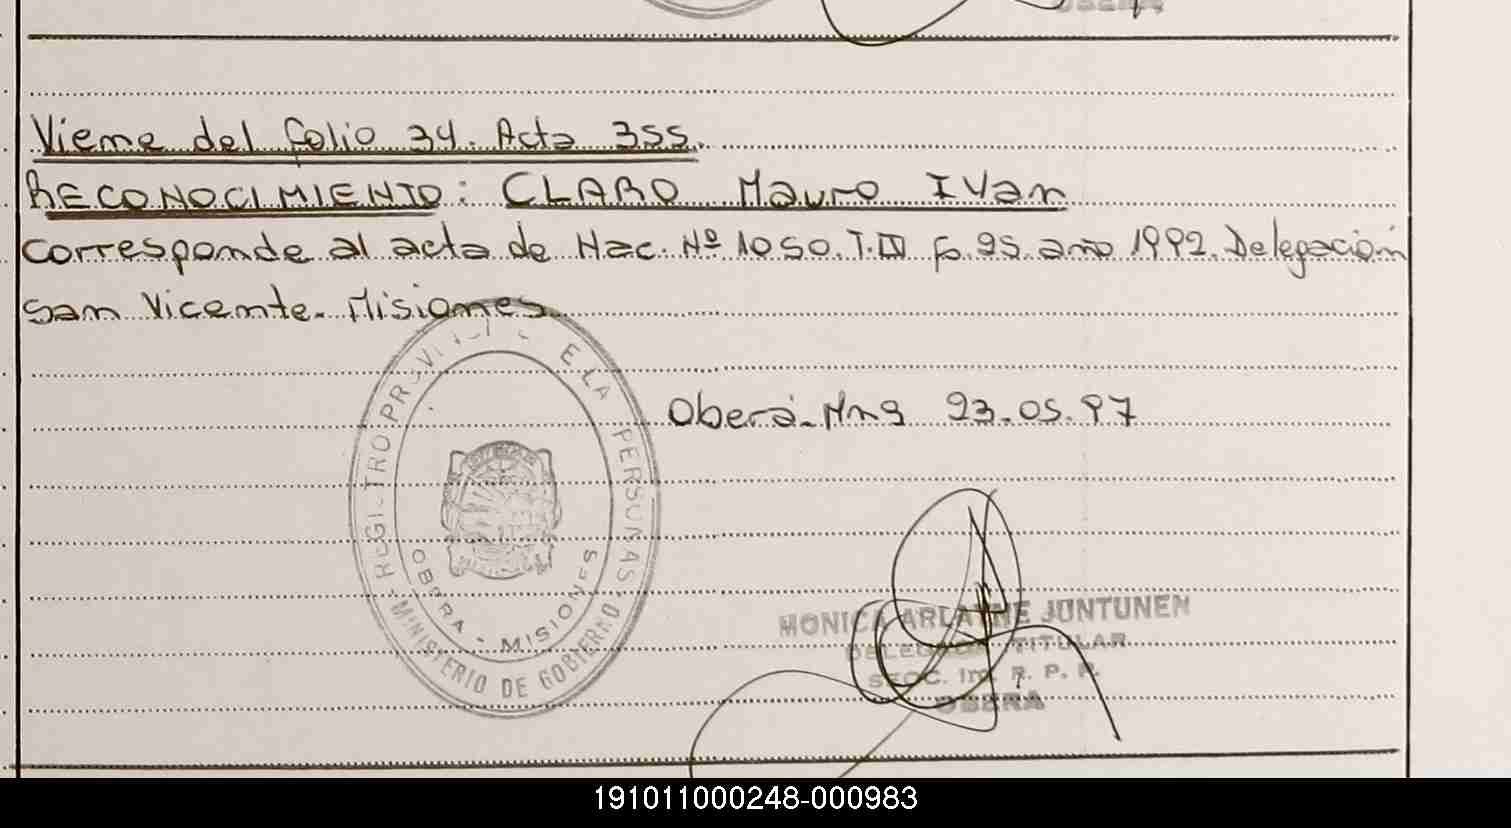 Viene del folio 34. Acta 355.
RECONOCIMIENTO: CLARO Mauro IVan
corresponde al acta de Nac. Nº 1050. T.IV fo. 95. año 1992. Delegación
San Vicente. Misiones
REGISTRO PROVINCI E LA PERSONAS
OBERA - MISIONES
MINISTERIO DE GOBIERNO
Oberá. Mns 23.05.97
MONICA ARLAINE JUNTUNEN
DELEGADA TITULAR
SECC. R. P. P.
OBERA
191011000248-000983